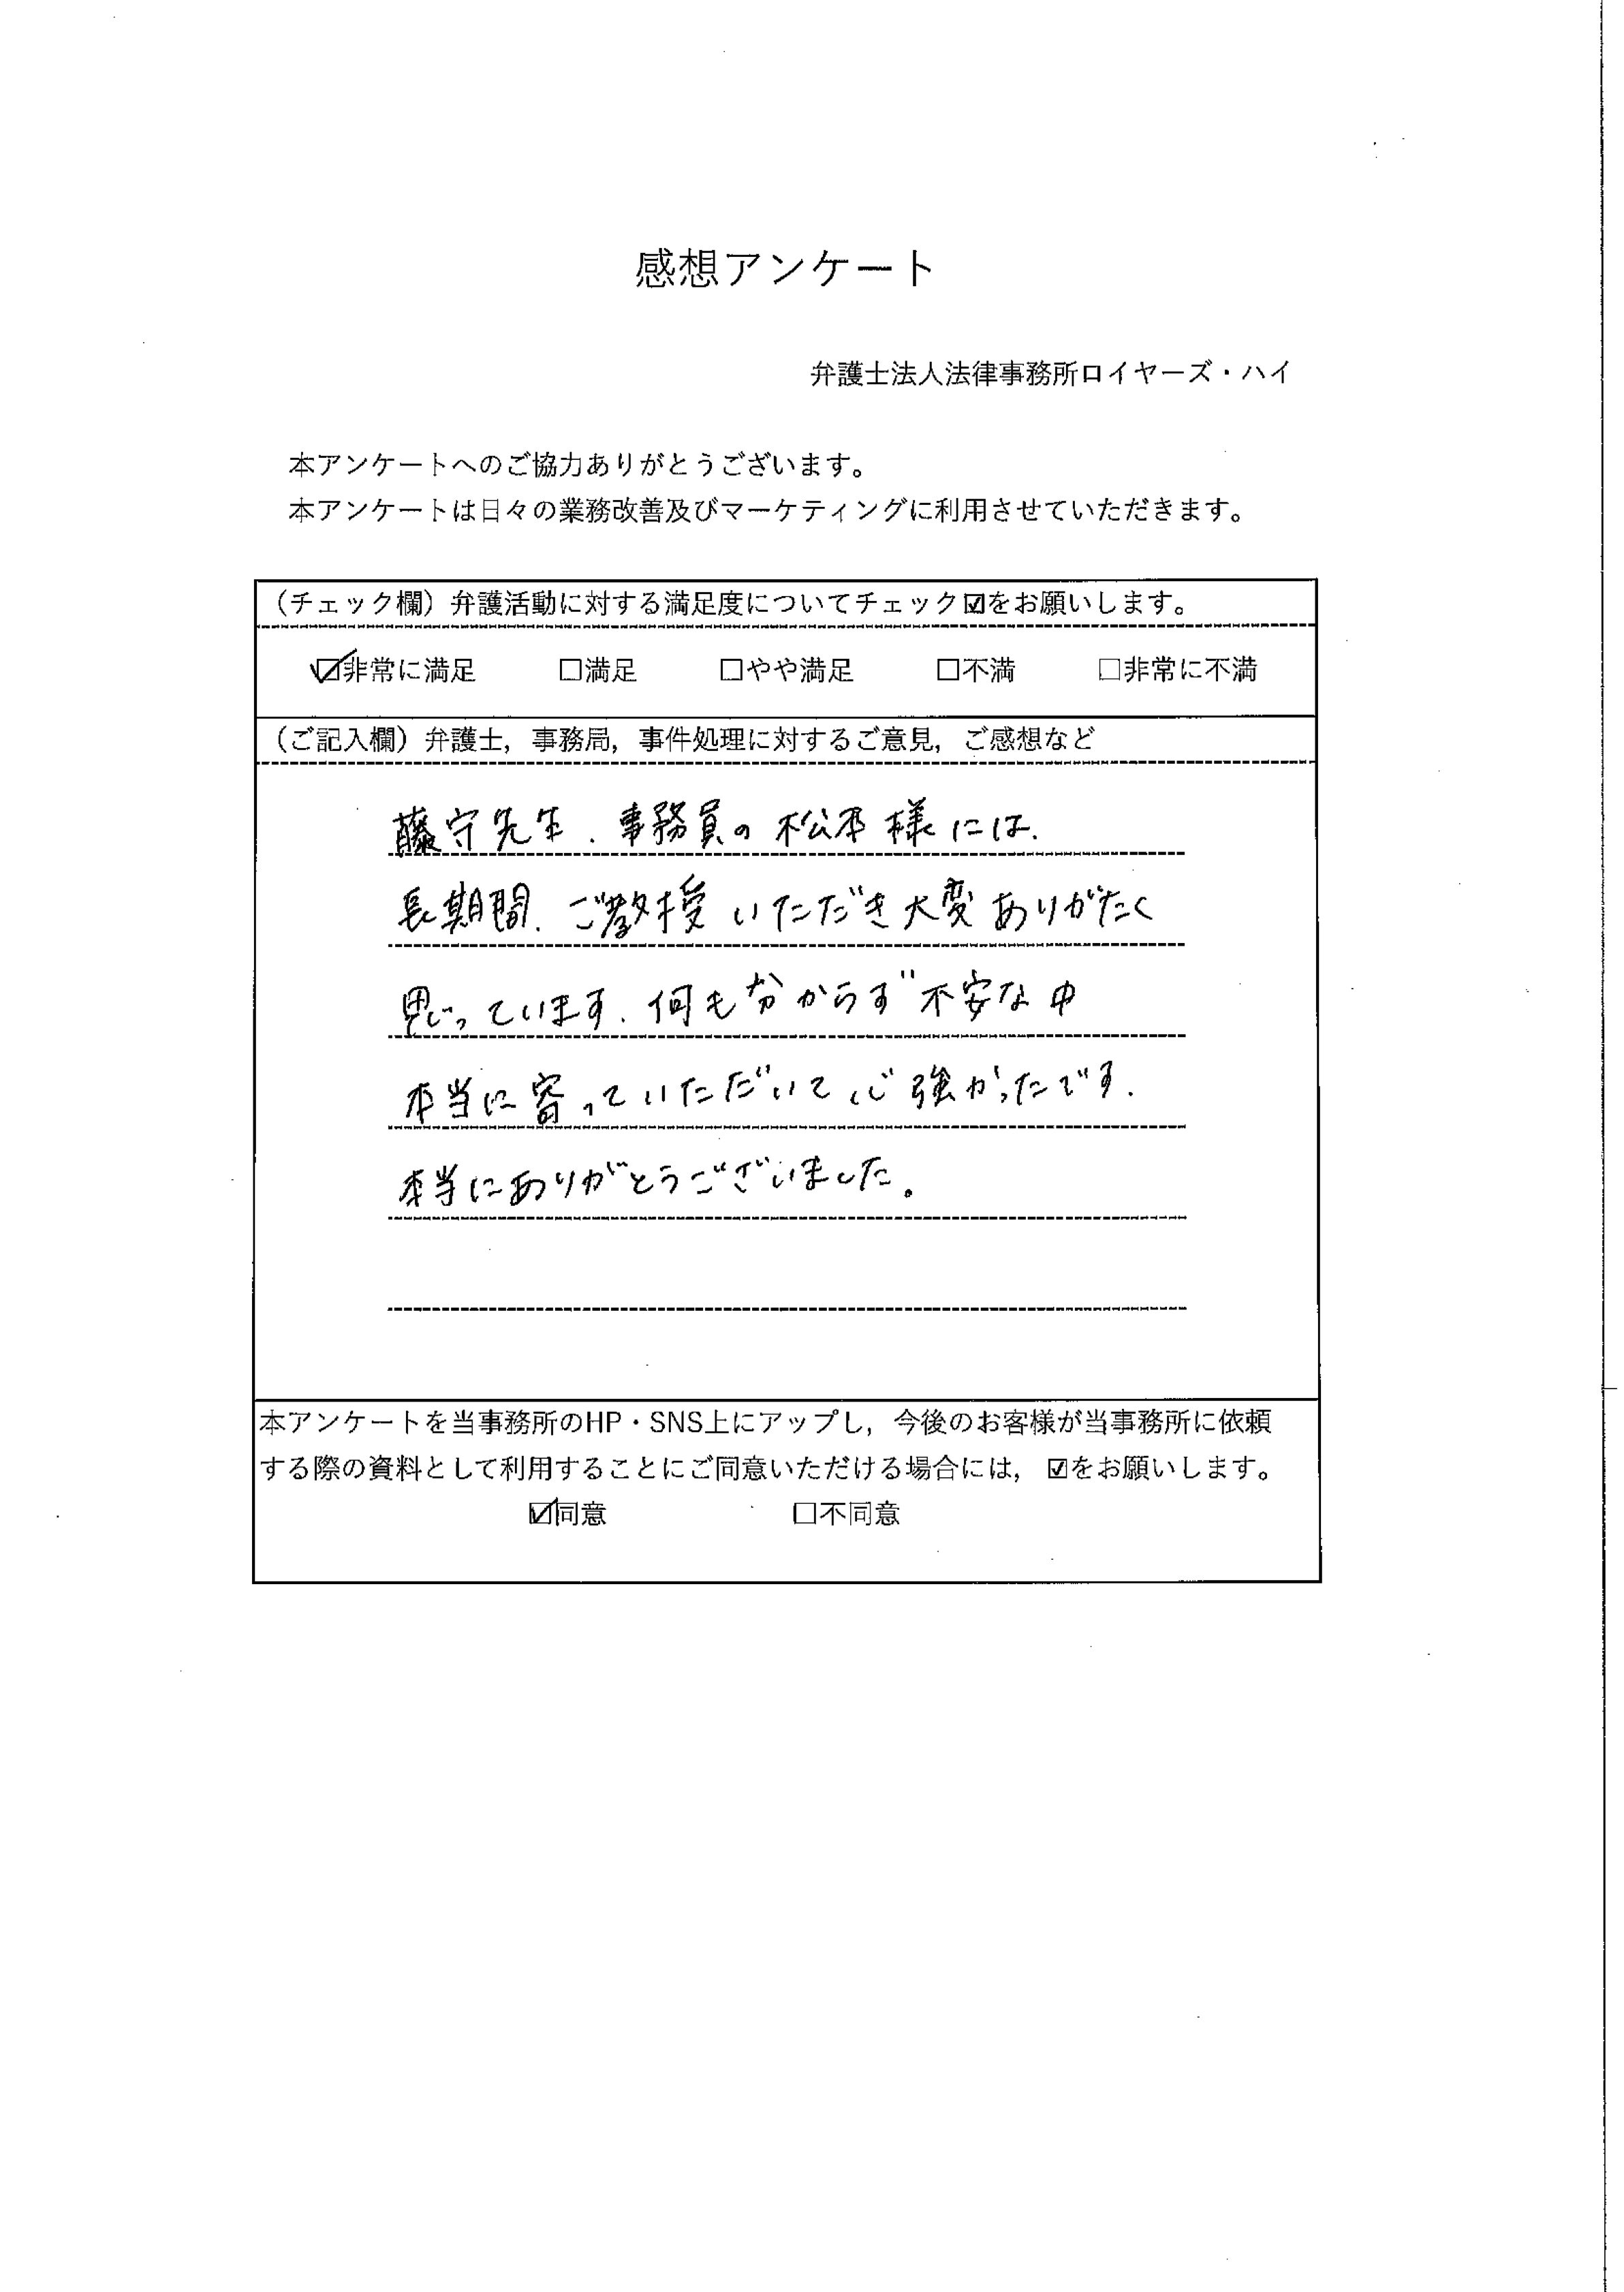 感想アンケート
弁護士法人法律事務所ロイヤーズ・ハイ
本アンケートへのご協力ありがとうございます。
本アンケートは日々の業務改善及びマーケティングに利用させていただきます。
（チェック欄）弁護活動に対する満足度についてチェック☑をお願いします。
☑非常に満足 □満足 □やや満足 □不満 □非常に不満
（ご記入欄）弁護士，事務局，事件処理に対するご意見，ご感想など
藤守先生、事務員の松本様には、
長期間、ご教授いただき大変ありがたく
思っています、何も分からず不安な中
本当に寄っていただいて心強かったです.
本当にありがとうございました。
本アンケートを当事務所のHP・SNS上にアップし，今後のお客様が当事務所に依頼
する際の資料として利用することにご同意いただける場合には，☑をお願いします。
☑同意 □不同意